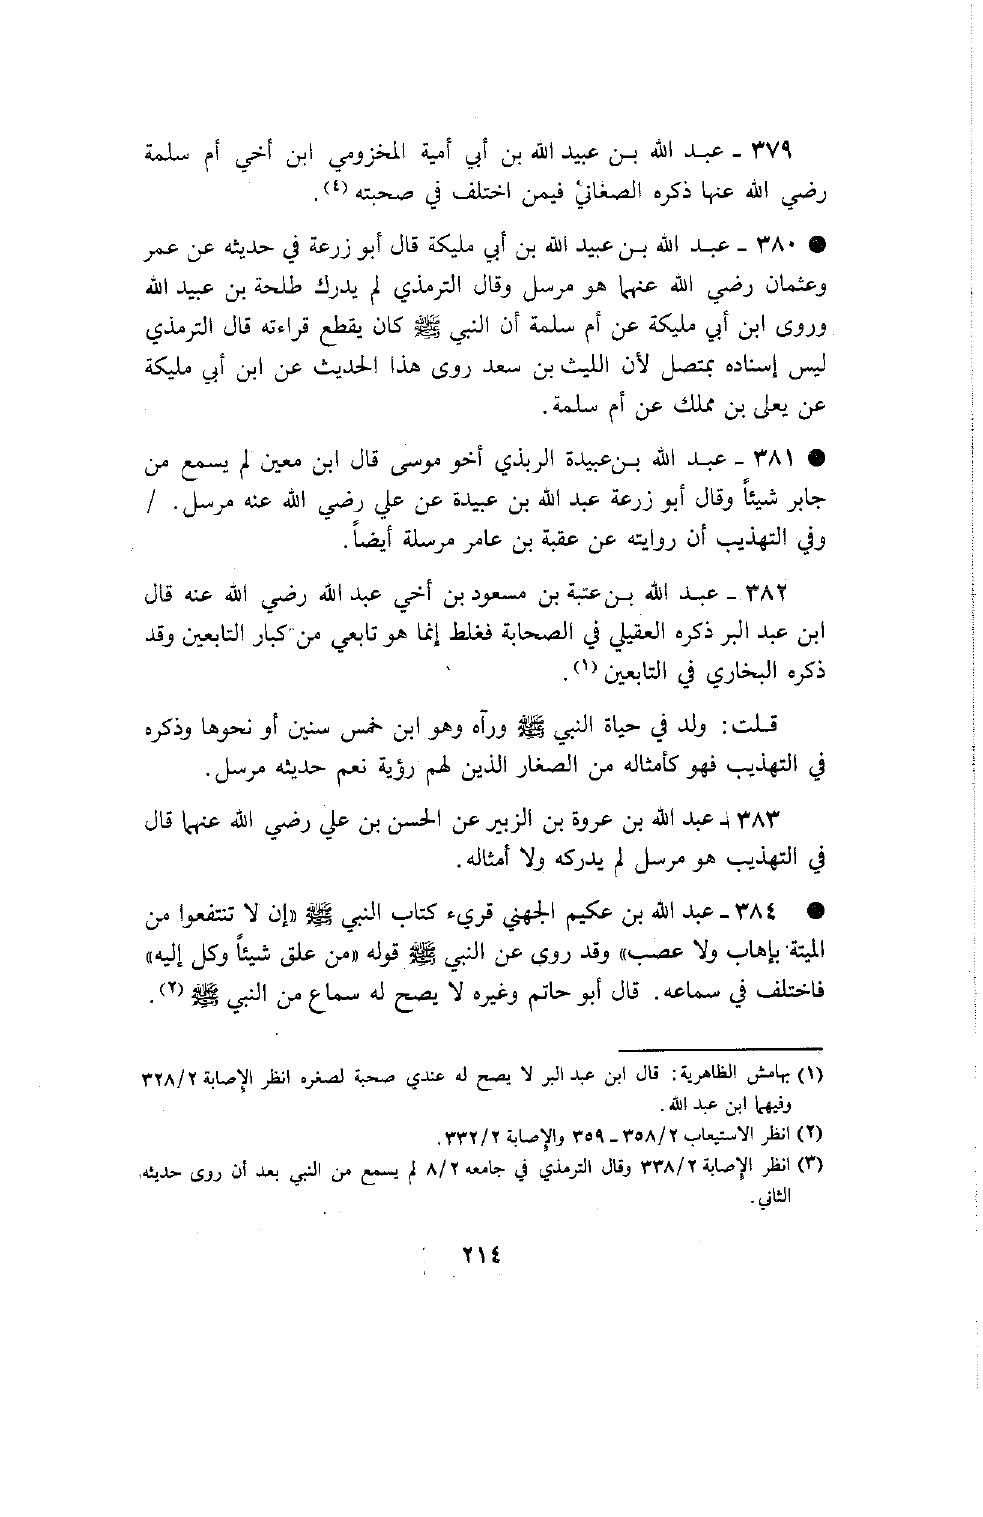 ٣٧٩ ـ عبـد الله بـن عبيد الله بن أبي أمية المخزومي ابن أخي أم سلمة
رضي الله عنها ذكره الصغانيّ فيمن اختلف في صحبته (٤).
● ٣٨٠ ـ عبـد الله بـن عبيد الله بن أبي مليكة قال أبو زرعة في حديثه عن عمر
وعثمان رضي الله عنهما هو مرسل وقال الترمذي لم يدرك طلحة بن عبيد الله
وروى ابن أبي مليكة عن أم سلمة أن النبي ﷺ كان يقطع قراءته قال الترمذي
ليس إسناده بمتصل لأن الليث بن سعد روى هذا الحديث عن ابن أبي مليكة
عن يعلى بن مملك عن أم سلمة.
● ٣٨١ ـ عبـد الله بـن عبيدة الربذي أخو موسى قال ابن معين لم يسمع من
جابر شيئاً وقال أبو زرعة عبد الله بن عبيدة عن علي رضي الله عنه مرسل. /
وفي التهذيب أن روايته عن عقبة بن عامر مرسلة أيضاً.
٣٨٢ ـ عبـد الله بـن عتبة بن مسعود بن أخي عبد الله رضي الله عنه قال
ابن عبد البر ذكره العقيلي في الصحابة فغلط إنما هو تابعي من كبار التابعين وقد
ذكره البخاري في التابعين (١).
قـلـت: ولد في حياة النبي ﷺ ورآه وهو ابن خمس سنين أو نحوها وذكره
في التهذيب فهو كأمثاله من الصغار الذين لهم رؤية نعم حديثه مرسل.
٣٨٣ ـ عبد الله بن عروة بن الزبير عن الحسن بن علي رضي الله عنهما قال
في التهذيب هو مرسل لم يدركه ولا أمثاله.
● ٣٨٤ ـ عبد الله بن عكيم الجهني قريء كتاب النبي ﷺ «إن لا تنتفعوا من
الميتة بإهاب ولا عصب» وقد روى عن النبي ﷺ قوله «من علق شيئاً وكل إليه»
فاختلف في سماعه. قال أبو حاتم وغيره لا يصح له سماع من النبي ﷺ (٢).
(١) بهامش الظاهرية: قال ابن عبد البر لا يصح له عندي صحبة لصغره انظر الإصابة ٣٢٨/٢
وفيهما ابن عبد الله.
(٢) انظر الاستيعاب ٣٥٨/٢ ـ ٣٥٩ والإصابة ٣٣٢/٢.
(٣) انظر الإصابة ٣٣٨/٢ وقال الترمذي في جامعه ٨/٢ لم يسمع من النبي بعد أن روى حديثه
الثاني.
٢١٤